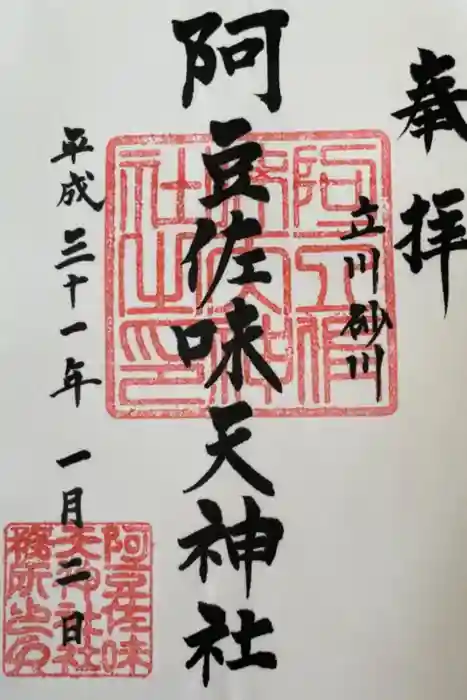 奉拝
立川砂川
阿豆佐味天神社
平成三十一年一月二日
阿豆佐味
天神社社
務所之印